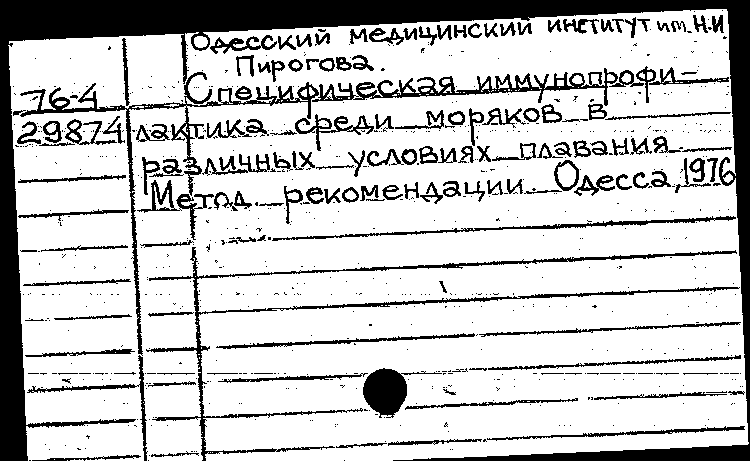 Одесский медицинский институт им. Н.И
Пирогова.
76-4 Специфическая иммунопрофи-
29874 лактика среди моряков в
различных условиях плавания
Метод. рекомендации. Одесса, 1976